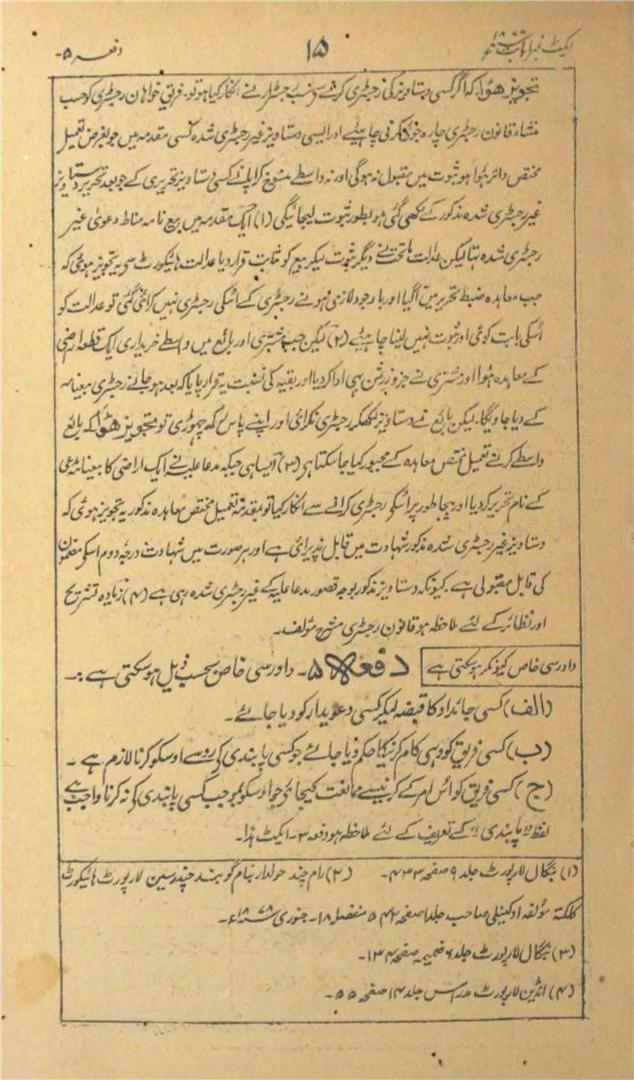 ایکٹ نمبر ا بابت ۱۸۷۷ء ۱۵ دفعہ ۵۔
تجویز ہوا کہ اگر کسی دستاویز کی رجسٹری کرنے سے سب رجسٹرار نے انکار کیا ہو تو۔ فریق خواہان رجسٹری کو حسب
منشاء قانون رجسٹری چارہ جوئی کرنی چاہیئے اور ایسی دستاویز غیر رجسٹری شدہ کسی مقدمہ میں جو بغرض تعمیل
مختص دائر ہوا ہو ثبوت میں مقبول نہ ہوگی اور نہ واسطے منسوخ کرا پانے کسی دستاویز تحریری کے جو بعد تحریر دستاویز
غیر رجسٹری شدہ مذکور کے لکھی گئی ہو بطور ثبوت لیجائیگی (۱) ایک مقدمہ میں بیع نامہ مناط دعوی غیر
رجسٹری شدہ تھا لیکن عدالت ماتحت نے دیگر ثبوت لیکر بیع کو ثابت قرار دیا عدالت ہائیکورٹ سے یہ تجویز ہوئی کہ
جب معاہدہ ضبط تحریر میں آگیا اور باوجود لازمی ہونے رجسٹری کے اسکی رجسٹری نہیں کرائی گئی تو عدالت کو
اسکی بابت کوئی اور ثبوت نہیں لینا چاہیئے (۲) لیکن جب مشتری اور بائع میں واسطے خریداری ایک قطعہ اراضی
کے معاہدہ ہوا اور مشتری نے جزو زرثمن بھی ادا کر دیا اور بقیہ کی نسبت یہ قرار پایا کہ بعد ہو جانے رجسٹری بیعنامہ
کے دیا جاویگا۔ لیکن بائع نے دستاویز لکھکر رجسٹری نکرائی اور اپنے پاس رکھ چھوڑی تو تجویز ہوا کہ بائع
واسطے کرنے تعمیل مختص معاہدہ کے مجبور کیا جا سکتا ہے (۳) ایسا ہی جبکہ مدعا علیہ نے ایک اراضی کا بیعنامہ مدعی
کے نام تحریر کر دیا اور بیجا طور پر اسکو رجسٹری کرانے سے انکار کیا تو مقدمہ تعمیل مختص معاہدہ مذکور یہ تجویز ہوئی کہ
دستاویز غیر رجسٹری شدہ مذکور شہادت میں قابل پذیرائی ہے اور ہر صورت میں شہادت درجہ دوم اسکو مضمون
کی قابل مقبولی ہے۔ کیونکہ دستاویز مذکور بوجہ قصور مدعا علیہ کے غیر رجسٹری شدہ رہی ہے (۴) زیادہ تشریح
اور نظائر کے لئے ملاحظہ ہو قانون رجسٹری مشرح مؤلف۔
دادرسی خاص کیونکر ہو سکتی ہے دفعہ ۵۔ دادرسی خاص بحسب ذیل ہو سکتی ہے :۔
(الف) کسی جائداد کا قبضہ لیکر کسی دعویدار کو دیا جائے۔
(ب) کسی فریق کو وہی کام کرنیکا حکم دیا جائے جو کسی پابندی کی رو سے اوسکو کرنا لازم ہے۔
(ج) کسی فریق کو اس امر کے کرنیسے ممانعت کیجائے جو اوسکو بموجب کسی پابندی کے نہ کرنا واجب ہے
لفظ "پابندی" کے تعریف کے لئے ملاحظہ ہو دفعہ ۳۔ ایکٹ ہذا۔
(۱) بنگال لارپورٹ جلد ۹ صفحہ ۴۳۳۔ (۲) رام چند حولدار بنام گوبند چندرسین لارپورٹ ہائیکورٹ
کلکتہ مؤلفہ اوکینلی صاحب جلد ا صفحہ ۵۴۲ منفصل ۱۸۔ جنوری ۱۸۷۸ء۔
(۳) بنگال لارپورٹ جلد ۶ ضمیمہ صفحہ ۱۳۴۔
(۴) انڈین لارپورٹ مدراس جلد ۱۴ صفحہ ۵۵۔